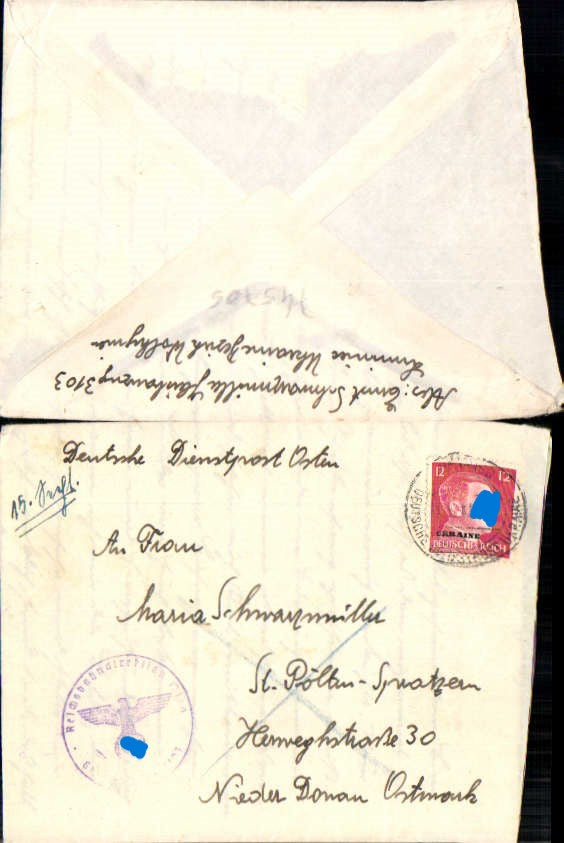 745706
Abs: Ernst Schwarzmüller 3103
Ukraine Bezirk Wolhynien
Deutsche Dienstpost Osten
15. Sept.
12 12
UKRAINE
DEUTSCHES REICH
An Frau
Maria Schwarzmüller
St. Pölten-Spratzern
Herweghstraße 30
Nieder Donau Ostmark
Reichsbahndirektion